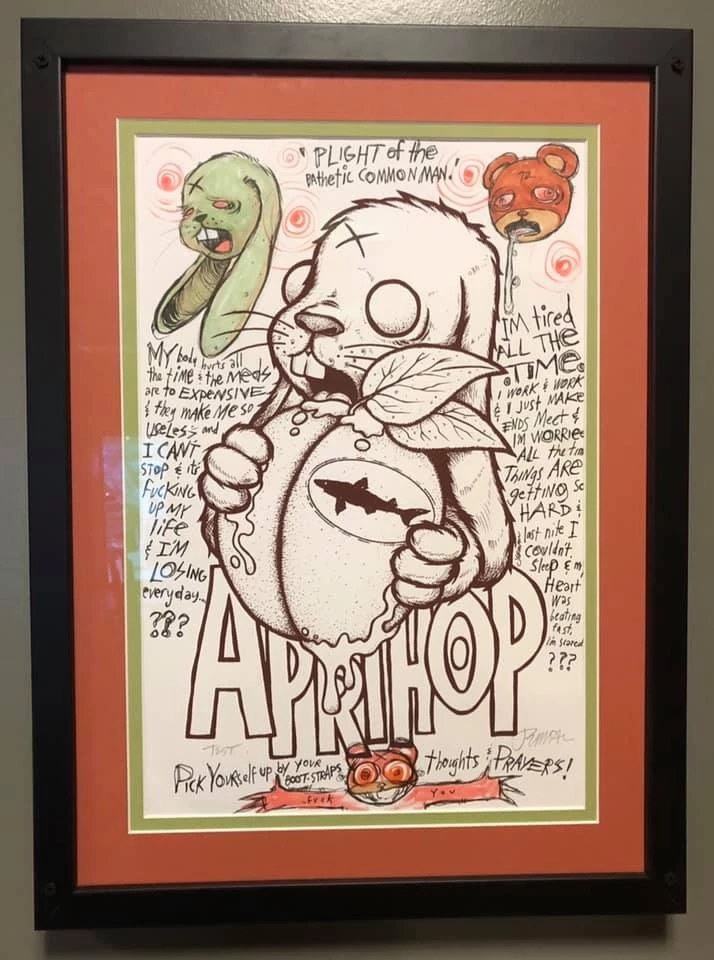 "PLIGHT of the
PATHETIC COMMON MAN."
MY body hurts all
the time & the MEDS
are to EXPENSIVE
& they MAKE ME so
USELESS and
I CAN'T
STOP & its
FUCKING
UP MY
life
& I'M
LOSING
everyday..
???
I'M tired
ALL THE
TIME.
I WORK & WORK
& I JUST MAKE
ENDS Meet &
I'M WORRIED
ALL the tim
Things ARE
getting so
HARD &
last nite I
couldn't
sleep & my
Heart
was
beating
fast,
i'm scared
???
APRIHOP
TEST
PICK YOURSELF UP by YOUR
BOOT-STRAPS
thoughts & PRAYERS!
FUCK YOU